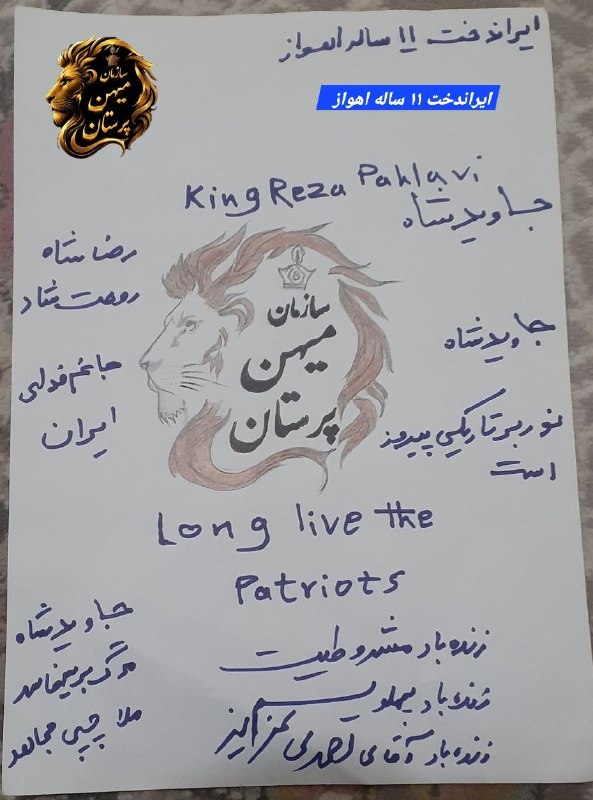 ایراندخت ۱۱ ساله اهواز
سازمان
میهن
پرستان
ایراندخت ۱۱ ساله اهواز
King Reza Pahlavi
جاوید شاه
رضا شاه
روحت شاد
سازمان
میهن
پرستان
جاوید شاه
جانم فدای
ایران
نور بر تاریکی پیروز
است
Long live the
Patriots
جاوید شاه
مرگ بر سه فاسد
ملا چپی مجاهد
زنده باد مشروطیت
زنده باد پهلویسم
زنده باد آقای